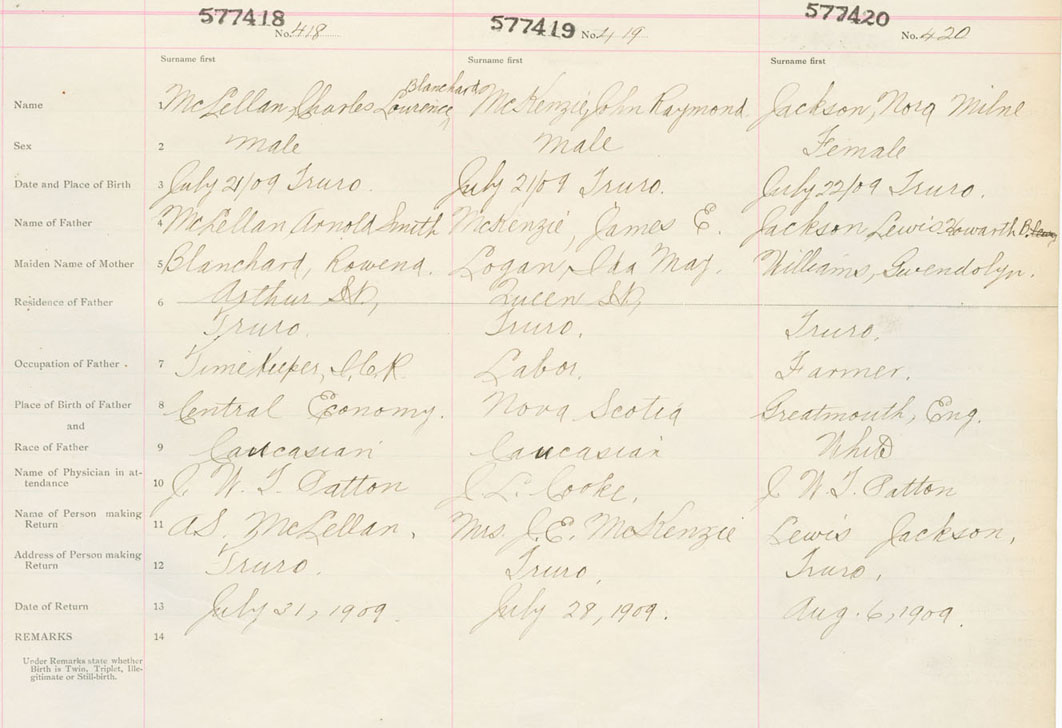 577418 577419 577420
No. 418 No. 419 No. 420
Surname first Surname first Surname first
Blanchard
Name 1 McLellan, Charles Lourence McKenzie, John Raymond Jackson, Nora Milne
Sex 2 Male Male Female
Date and Place of Birth 3 July 21/09 Truro. July 21/09 Truro. July 22/09 Truro.
Name of Father 4 McLellan Arnold Smith McKenzie, James E. Jackson, Lewis Howarth
Maiden Name of Mother 5 Blanchard, Rowena. Logan, Ida May. Williams, Gwendolyn.
Arthur St, Queen St,
Residence of Father 6
Truro. Truro. Truro.
Occupation of Father . 7 Timekeeper, I.C.R. Labor. Farmer.
Place of Birth of Father 8 Central Economy. Nova Scotia Greatmouth, Eng.
and
Race of Father 9 Caucasian Caucasian White
Name of Physician in at-
tendance 10 J. W. T. Patton J. L. Cooke. J W. T. Patton
Name of Person making
Return 11 A.S. McLellan. Mrs. J. E. McKenzie Lewis Jackson,
Address of Person making
Return 12 Truro. Truro, Truro,
Date of Return 13 July 31, 1909. July 28, 1909. Aug. 6, 1909.
REMARKS 14
Under Remarks state whether
Birth is Twin, Triplet, Ille-
gitimate or Still-birth.